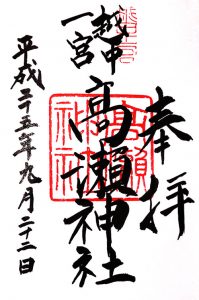 奉拝
越中
一宮
高瀬神社
高瀬神社
平成二十五年九月二十二日